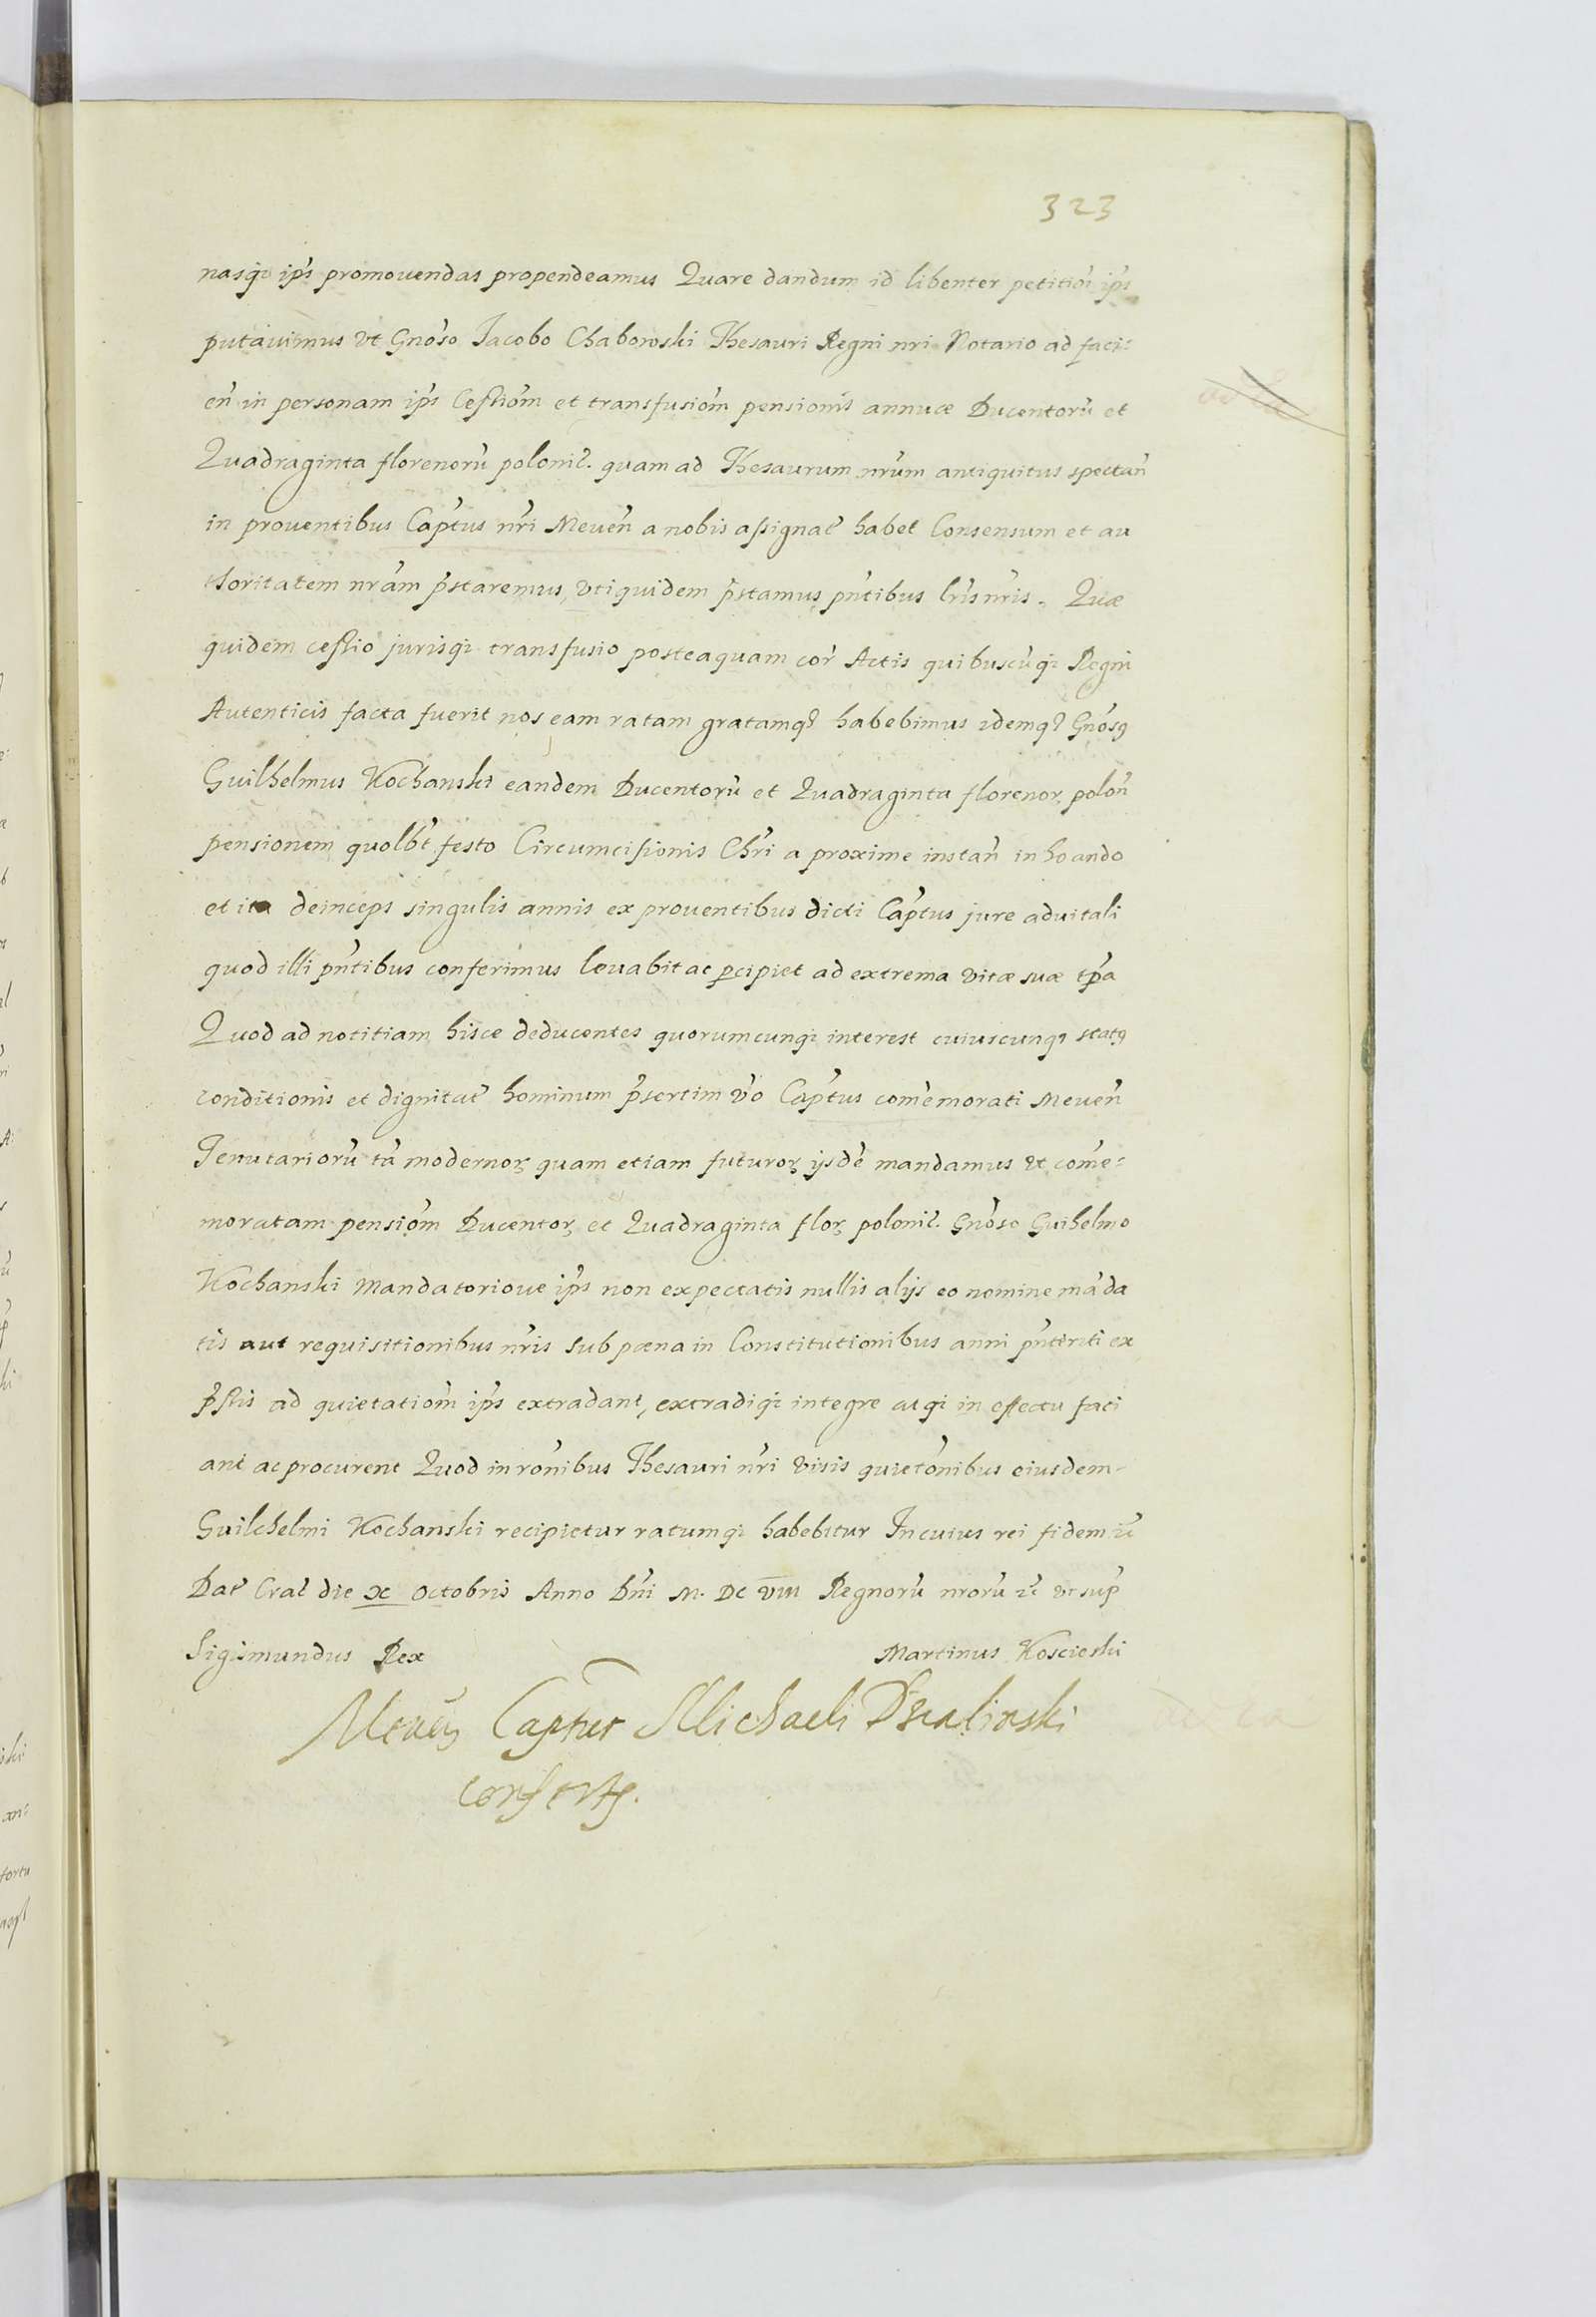 323
nasq꞉ ip̃s promouendas propendeamus Quare dandum id libenter petitiõi ip̃s
putauimus vt Gnõso Iacobo Chaboroski Thesauri Regni nri Notario ad faci꞉
eñ in personam ip̃s Ceſsiõm et transfusiõm pensionis annuæ Ducentorũ et
Quadraginta florenorũ polonił. quam ad Thesaurum nrũm antiquitus spectañ
in prouentibus Cap̃tus nr̃i Meueñ a nobis aſsignat̃ habet Consensum et au
thoritatem nrãm p̃staremus, vti quidem p̃stamus pñtibus lr̃is nr̃is. Quæ
quidem ceſsio jurisq꞉ transfusio posteaquam cor̃ Actis quibuscũq꞉ Regni
Autenticis facta fuerit nos eam ratam gratamq꞉ habebimus idemq꞉ Gnõsꝰ
Guilhelmus Kochanski eandem Ducentorũ et Quadraginta florenor. poloñ
pensionem quolb̃t festo Circumcisionis Chr̃i a proxime instañ inhoando
et ita deinceps singulis annis ex prouentibus dicti Cap̃tus jure aduitali
quod illi pñtibus conferimus leuabit ac ꝑcipiet ad extrema vitæ suæ tp̃a
Quod ad notitiam hisce deducentes quorumcunq꞉ interest cuiuscunq꞉ statꝰ
conditionis et dignitat̃ hominum p̃sertim ṽo Cap̃tus comẽmorati Meueñ
Tenutariorũ tã modernoꝝ quam etiam futuroꝝ ijsdẽ mandamus vt comẽ꞉
moratam pensiõm Ducentoꝝ et Quadraginta floꝝ polonił. Gnõso Guihelmo
Kochanski Mandatorioue ip̃s non expectatis nullis alijs eo nomine mãda
tis aut requisitionibus nr̃is sub pœna in Constitutionibus anni pñteriti ex
p̃ſsis ad quietatiõm ip̃s extradant, extradiq꞉ integre atq꞉ in effectu faci
ant ac procurent Quod in rõnibus Thesauri nr̃i visis quietõnibus eiusdem
Guilchelmi Kochanski recipietur ratumq꞉ habebitur In cuius rei fidem
Dat̃ Crac̃ die x Octobris Anno Dñi M. DC VIII Regnorũ nrorũ vt sup̃
Sigismundus Rex Martinus Koscieski
Meueñ Captus Michaeli Dzialinski
confertʳ.